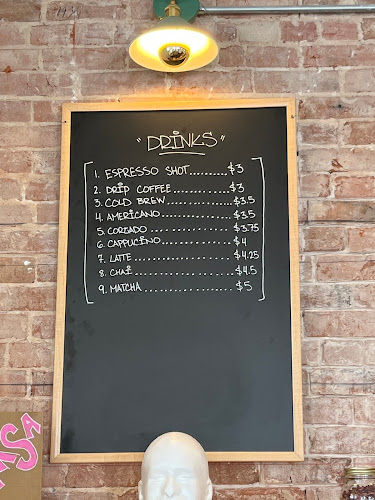 "DRINKS"
1. ESPRESSO SHOT..........$3
2. DRIP COFFEE............$3
3. COLD BREW..............$3.5
4. AMERICANO..............$3.5
5. CORDADO................$3.75
6. CAPPUCINO..............$4
7. LATTE..................$4.25
8. CHAI...................$4.5
9. MATCHA.................$5